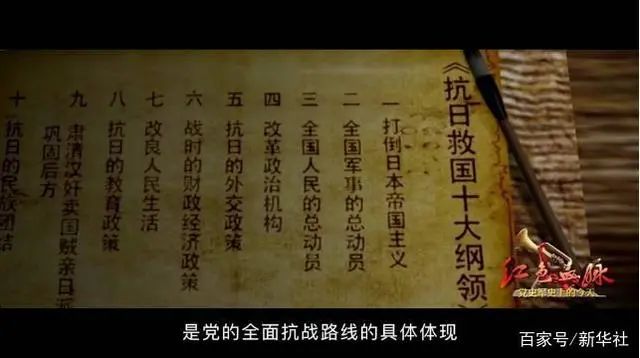 《抗日救国十大纲领》
一 打倒日本帝国主义
二 全国军事的总动员
三 全国人民的总动员
四 改革政治机构
五 抗日的外交政策
六 战时的财政经济政策
七 改良人民生活
八 抗日的教育政策
九 肃清汉奸卖国贼亲日派
巩固后方
十 抗日的民族团结
红色血脉
党史军史上的今天
是党的全面抗战路线的具体体现
百家号/新华社